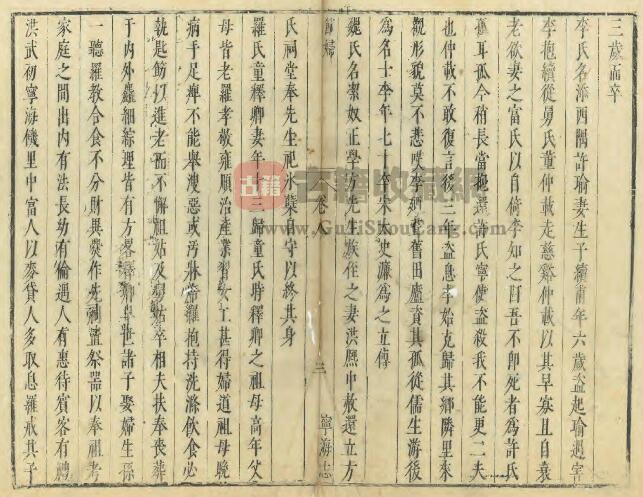 三歲而卒
李氏名滁西隅許瑜妻生子續甫年六歲盜起瑜遇害
李抱續從舅氏童仲載走慈谿仲載以其早寡且自衰
老欲妻之富氏以自倚李知之曰吾不即死者為許氏
孤耳孤今稍長當抱還許氏寧使盜殺我不能更二夫
也仲載不敢復言後三年盜息李始克歸其鄉隣里來
觀形貌莫不悲嘆李綱舊田廬資其孤從儒生游後
為名士李年七十卒宋太史濂為之立傳
魏氏名潔奴正學方先生族侄之妻洪熙中赦還立方
節婦
卷八
三
寧海志
氏祠堂奉先生祀氷蘗自守以終其身
羅氏童釋卿妻年十三歸童氏時釋卿之祖母高年父
母皆老羅孝敬雍順治產業習女工甚得婦道祖母晚
病手足痺不能舉溲惡或汚牀常羅抱持洗滌飲食必
執匙筯以進老而不懈祖姑及舅姑卒相夫扶奉喪葬
于內外麤細綜理皆有方畧釋卿早世諸子娶婦生孫
一聽羅教令食不分財異爨作先祠置祭器以奉祖考
家庭之間出內有法長幼有倫遇人有惠待賓客有禮
洪武初寧海饑里中富人以麥貸人多取息羅戒其子
古籍
古籍收藏網
www.GuJiShouCang.com